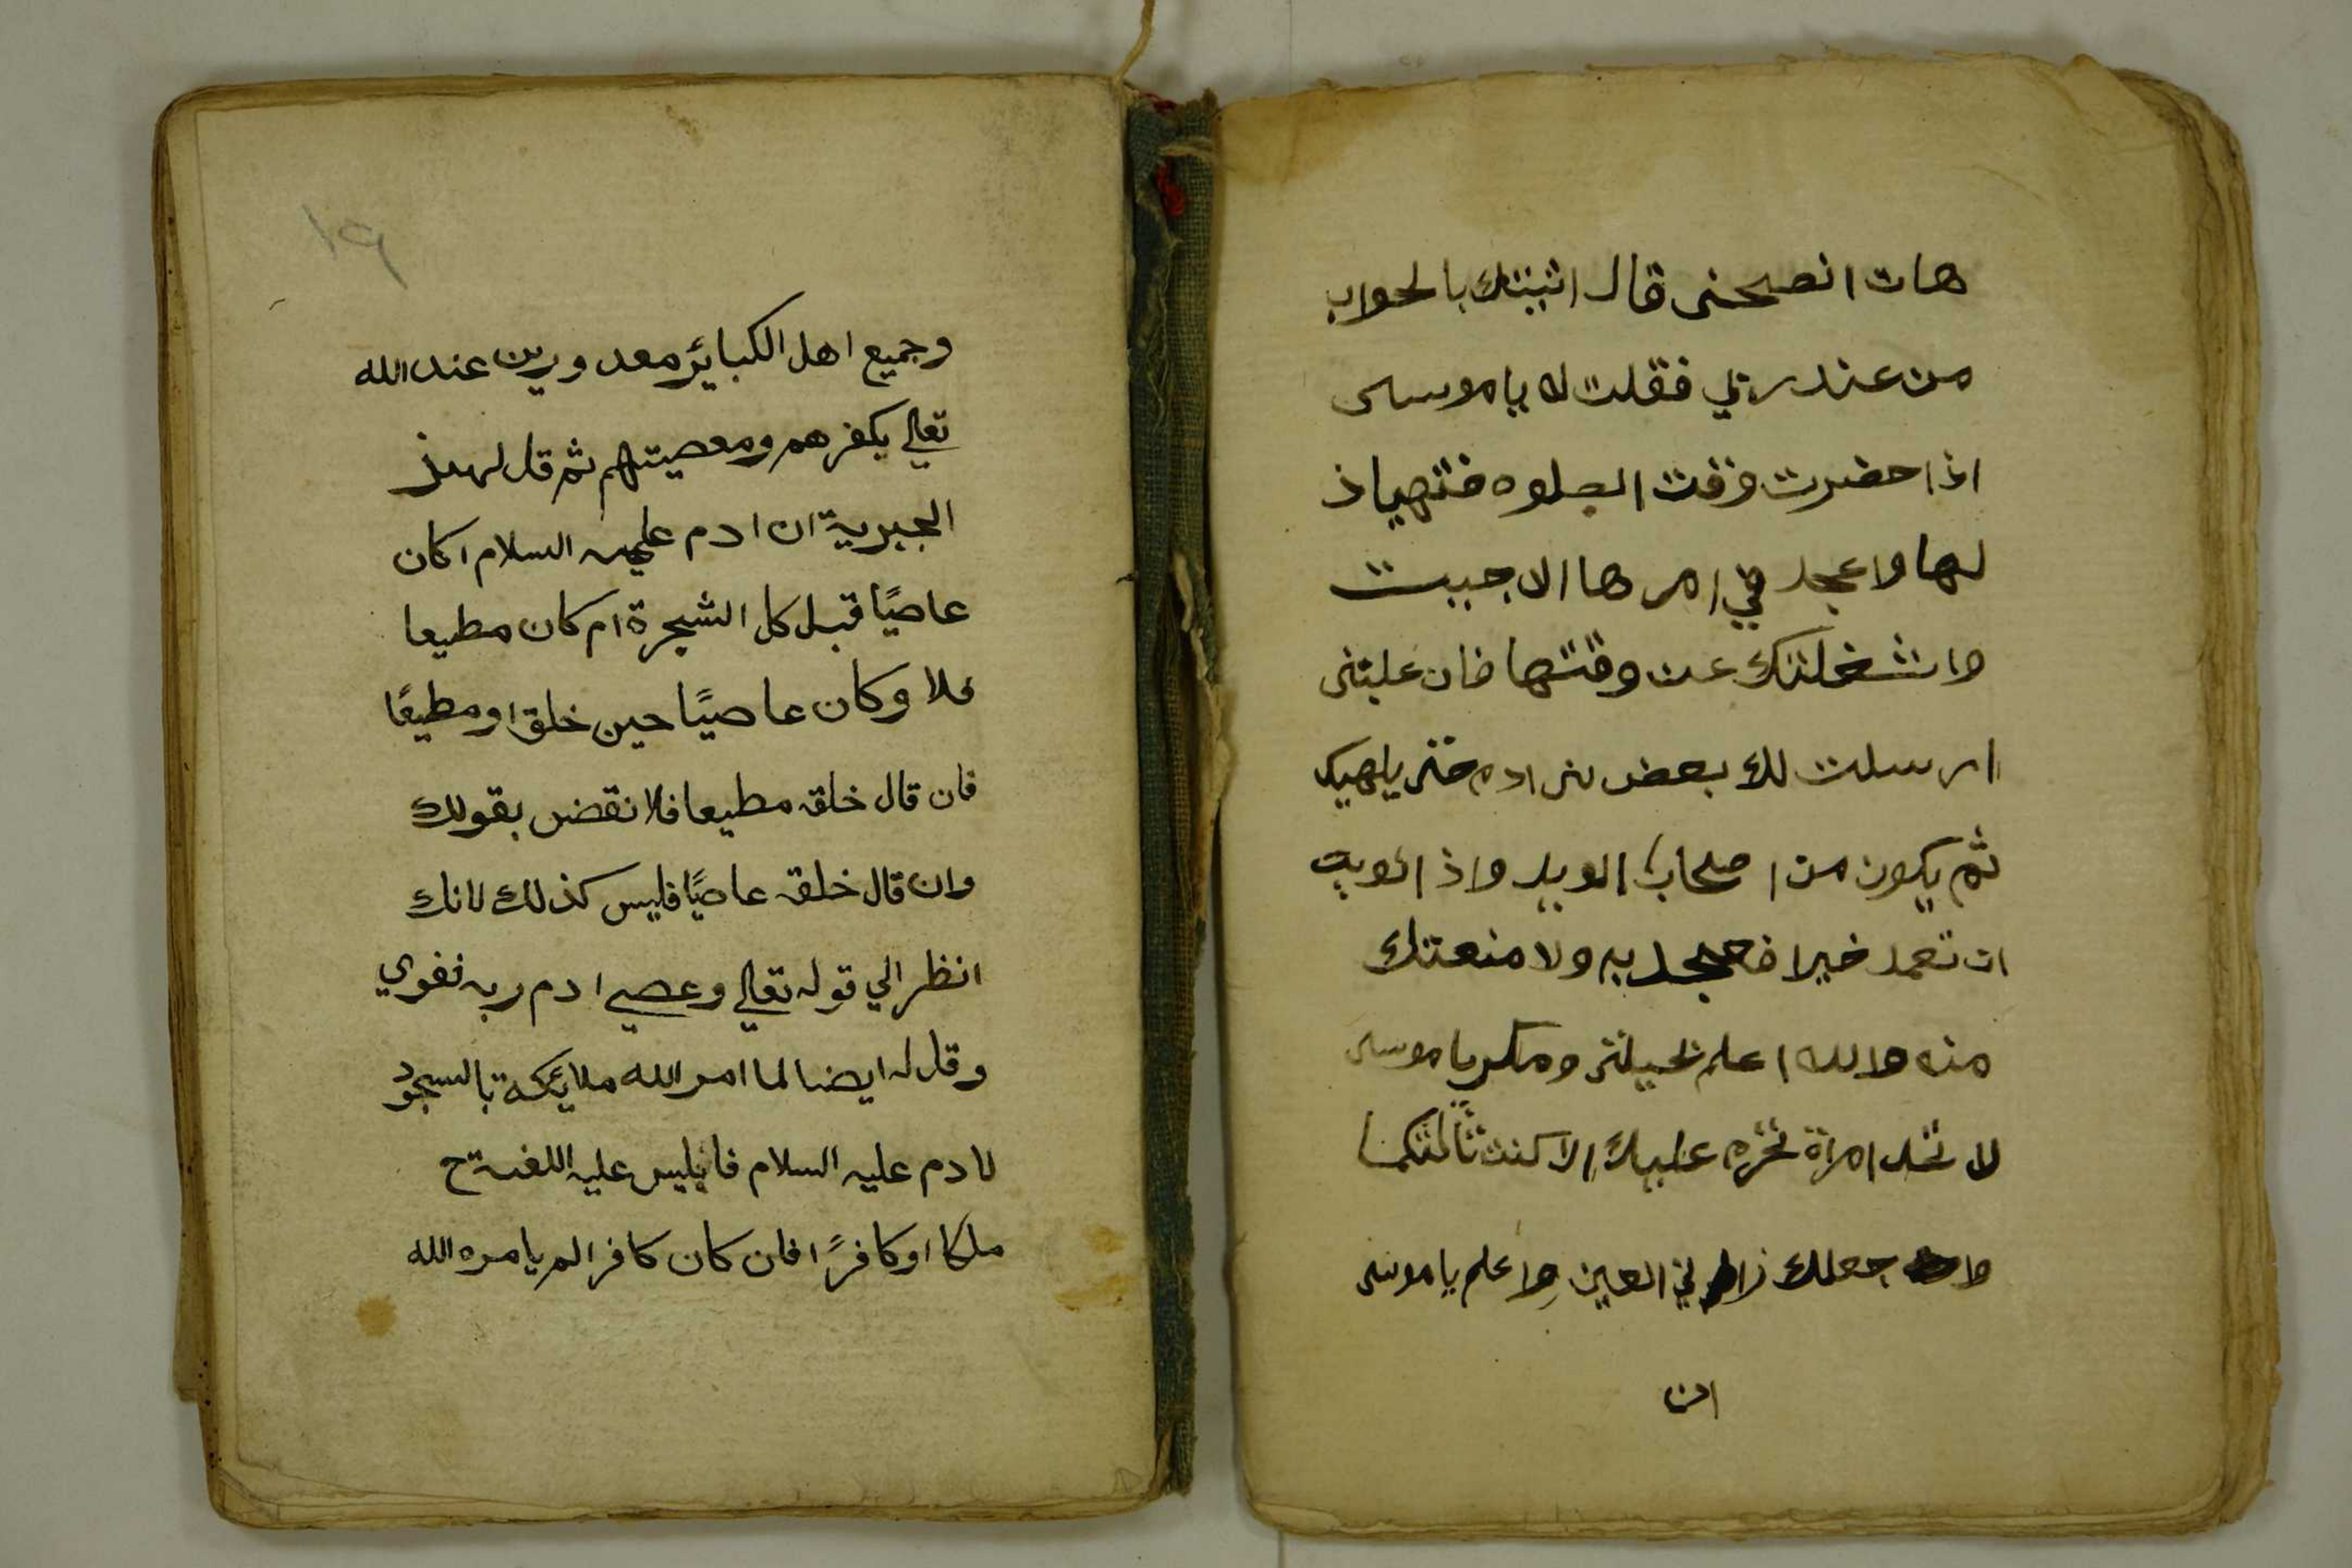 هات انصحنى قال اثبتك بالجواب
من عند ربي فقلت له يا موسى
اذا حضرت وقت الصلوه فتهياذ
لها واعجد في امرها الا جيت
واشغلتك عن وقتها فان غلبتنى
ارسلت لك بعض بنى ادم حتى يلهيك
ثم يكون من اصحاب الويل واذا نويت
ان تعمد خيرا فعجد به ولا منعتك
منه والله اعلم لحيلتى ومكري يا موسى
لا تخد امراة تحرم عليك الا كنت ثالثكما
وا جعلك زاني العين واعلم يا موسى
ان
١٩
وجميع اهل الكبايئر معدورين عند الله
تعالي بكفرهم ومعصيتهم ثم قل لهذ
الجبرية ان ادم عليه السلام اكان
عاصيًا قبل كل الشجرة ام كان مطيعا
فلا وكان عاصيًا حين خلق او مطيعًا
فان قال خلقه مطيعا فلا نقض بقولك
وان قال خلقه عاصيًا فليس كذلك لانك
انظر الي قوله تعالي وعصي ادم ربه فغوي
وقل له ايضا لما امر الله ملايئكة بالسجود
لادم عليه السلام فابليس عليه اللعنة ح
ملكا او كافرًا فان كان كافرا لم يامره الله